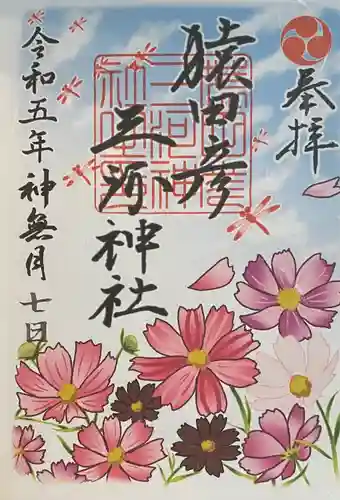 奉拝
猿田彦
三河神社
令和五年神無月七日